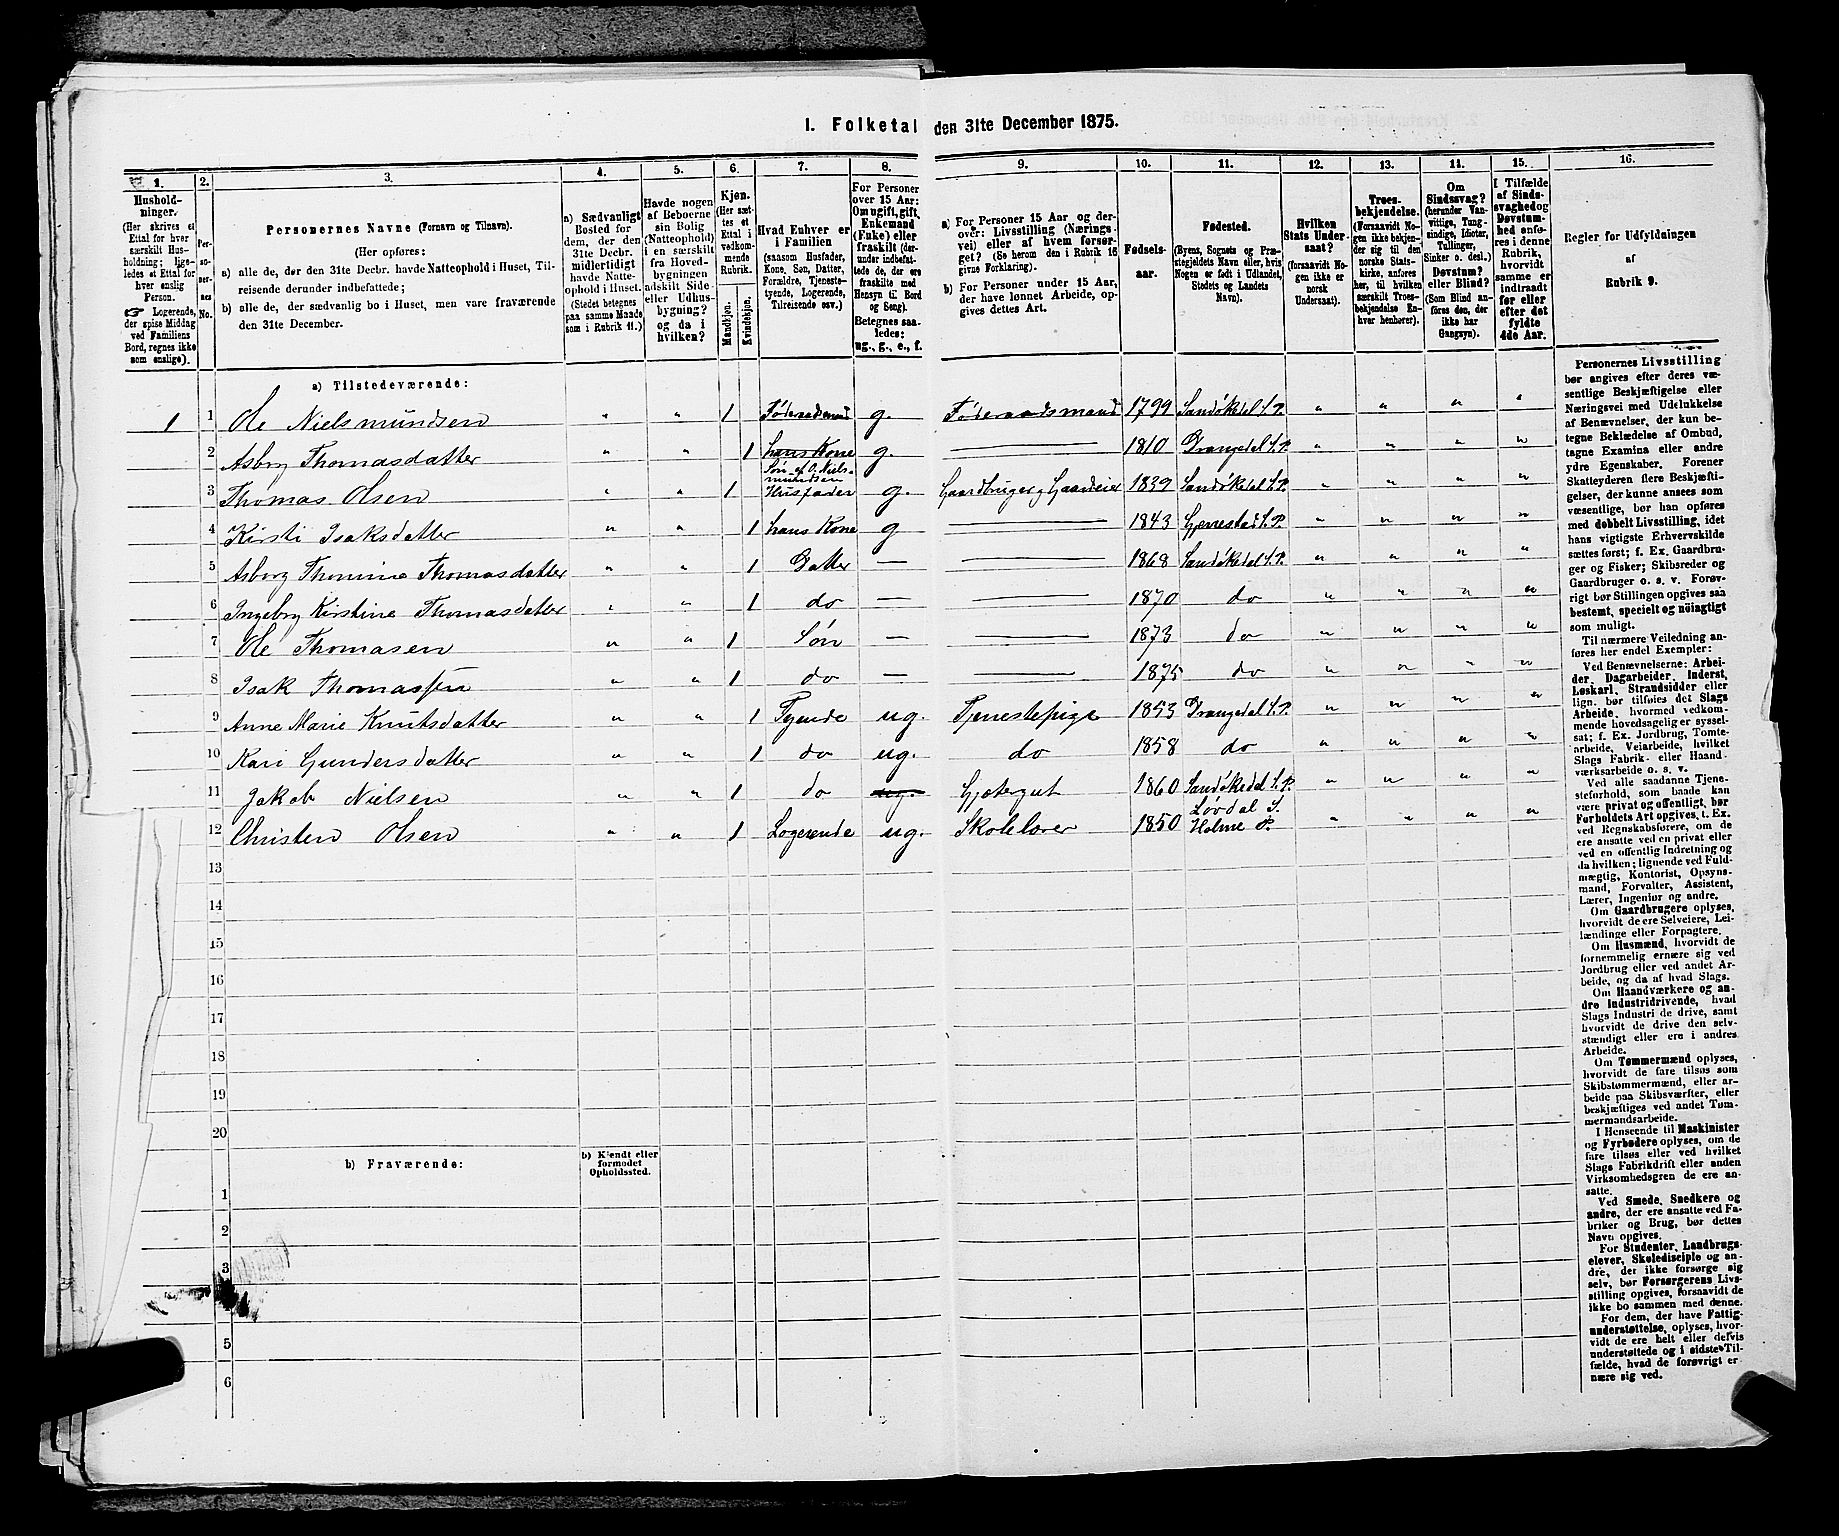 I. Folketal den 31te December 1875.
1. 2. 3. 4. 5. 6. 7. 8. 9. 10. 11. 12. 13. 14. 15. 16.
Hushold-
ninger.
(Her skrives et
Ettal for hver
særskilt Hus-
holdning; lige-
ledes et Ettal for
hver enslig
Person.
☞ Logerende,
der spise Middag
ved Familiens
Bord, regnes ikke
som enslige).
Per-
so-
ner-
nes
No.
Personernes Navne (Fornavn og Tilnavn).
(Her opføres:
a) alle de, der den 31te Decbr. havde Natteophold i Huset, Til-
reisende derunder indbefattede;
b) alle de, der sædvanlig bo i Huset, men vare fraværende
den 31te December.
a) Sædvanligt
Bosted for
dem, der den
31te Decbr.
midlertidigt
havde Natte-
ophold i Huset.
(Stedet betegnes
paa samme Maade
som i Rubrik 11.)
Havde nogen
af Beboerne
sin Bolig
(Natteophold)
i en særskilt
fra Hoved-
bygningen
adskilt Side-
eller Udhus-
bygning?
og da i
hvilken?
Kjøn.
(Her sæt-
tes et
Ettal i
vedkom-
mende
Rubrik.
Mandkjøn.
Kvindekjøn.
Hvad Enhver er
i Familien
(saasom Husfader,
Kone, Søn, Datter,
Forældre, Tjeneste-
tyende, Logerende,
Tilreisende osv.)
For Personer
over 15 Aar:
Om ugift, gift,
Enkemand
(Enke) eller
fraskilt (der-
under indbefat-
tede de, der ere
fraskilte med
Hensyn til Bord
og Seng).
Betegnes saa-
ledes:
ug., g., e., f.
a) For Personer 15 Aar og der-
over: Livsstilling (Nærings-
vei) eller af hvem forsør-
get? (Se herom den i Rubrik 16
givne Forklaring).
b) For Personer under 15 Aar,
der have lønnet Arbeide, op-
gives dettes Art.
Fødsels-
aar.
Fødested.
(Byens, Sognets og Præ-
stegjeldets Navn eller, hvis
Nogen er født i Udlandet,
Stedets og Landets
Navn).
Hvilken
Stats Under-
saat?
(forsaavidt No-
gen ikke er
norsk
Undersaat).
Troes-
bekjendelse.
(Forsaavidt No-
gen ikke bekjen-
der sig til den
norske Stats-
kirke, anføres
her, til hvilken
særskilt Troes-
bekjendelse En-
hver henhører).
Om
Sindssvag?
(herunder Van-
vittige, Tung-
sindige, Idioter,
Tullinger,
Sinker o. desl.)
Døvstum?
eller Blind?
(Som Blind an-
føres den, der
ikke har
Gangsyn).
I Tilfælde
af Sinds-
svaghed og
Døvstum-
hed anfø-
res i denne
Rubrik,
hvorvidt
samme er
indtraadt
før eller
efter det
fyldte
4de Aar.
Regler for Udfyldningen
af
Rubrik 9.
a) Tilstedeværende:
1 1 Ole Nielsmundsen " " 1 Føderaadsmand g. Føderaadsmand 1799 Sandøkedal S. P. " " " "
2 Asborg Thomasdatter " " 1 hans Kone g. — 1810 Drangedal S. P. " " " "
3 Thomas Olsen " " 1 Søn af O. Niels-
mundsen
Husfader g. Gaardbruger g Gaardeier 1839 Sandøkedal S. P. " " " "
4 Kirsti Isaksdatter " " 1 hans Kone g — 1843 Gjerrestad S. P. " " " "
5 Asborg Thomine Thomasdatter " " 1 Datter — — 1868 Sandøkedal S. P. " " " "
6 Ingeborg Kirstine Thomasdatter " " 1 do — — 1870 do " " " "
7 Ole Thomasen " " 1 Søn — — 1873 do " " " "
8 Isak Thomassen " " 1 do — — 1875 do " " " "
9 Anne Marie Knutsdatter " " 1 Tyende ug. Tjenestepige 1853 Drangedal S. P. " " " "
10 Kari Gundersdatter " " 1 do ug. do 1858 do " " " "
11 Jakob Nielsen " " 1 do ug. Gjætergut 1860 Sandøkedal S. P. " " " "
12 Christen Olsen " " 1 Logerende ug. Skolelærer 1850 Løvdal S.
Holme P. " " " "
13
14
15
16
17
18
19
20
b) Fraværende:
b) Kjendt eller
formodet
Opholdssted.
1
2
3
5
6
Personernes Livsstilling
bør angives efter deres væ-
sentlige Beskjæftigelse eller
Næringsvei med Udelukkelse
af Benævnelser, der kun be-
tegne Beklædelse af Ombud,
tagne Examina eller andre
ydre Egenskaber. Forener
Skatteyderen flere Beskjæfti-
gelser, der kunne ansees som
væsentlige, bør han opføres
med dobbelt Livsstilling, idet
hans vigtigste Erhvervskilde
sættes først; f. Ex. Gaardbru-
ger og Fisker; Skibsreder og
Gaardbruger o. s. v. Forøv-
rigt bør Stillingen opgives saa
bestemt, specielt og nöiagtigt
som muligt.
Til nærmere Veiledning an-
føres her endel Exempler:
Ved Benævnelserne: Arbei-
der, Dagarbeider, Inderst,
Løskarl, Strandsidder eller
lign. bør tilføies det Slags
Arbeide, hvormed vedkom-
mende hovedsagelig er syssel-
sat; f. Ex. Jordbrug, Tomte-
arbeide, Veiarbeide, hvilket
Slags Fabrik- eller Haand-
værksarbeide o. s. v.
Ved alle saadanne Tjene-
steforhold, som baade kan
være privat og offentligt, bør
Forholdets Art opgives, t. Ex.
ved Regnskabsførere, om de
ere ansatte ved en privat eller
ved en offentlig Indretning og
da hvilken; lignende ved Fuld-
mægtig, Kontorist, Opsyns-
mand, Forvalter, Assistent,
Lærer, Ingeniør og andre.
Om Gaardbrugere oplyses,
hvorvidt de ere Selveiere, Lei-
lændinge eller Forpagtere.
Om Husmænd, hvorvidt de
fornemmelig ernære sig ved
Jordbrug eller ved andet Ar-
beide, og da af hvad Slags.
Om Haandværkere og an-
dre Industridrivende, hvad
Slags Industri de drive, samt
hvorvidt de drive den selv-
stændigt eller ere i andres
Arbeide.
Om Tømmermænd oplyses,
hvorvidt de fare tilsøs som
Skibstømmermænd, eller ar-
beide paa Skibsværfter, eller
beskjæftiges ved andet Tøm-
mermandsarbeide.
I Henseende til Maskinister
og Fyrbødere oplyses, om de
fare tilsøs eller ved hvilket
Slags Fabrikdrift eller anden
Virksomhedsgren de ere an-
satte.
Ved Smede, Snedkere og
andre, der ere ansatte ved Fa-
briker og Brug, bør dettes
Navn opgives.
For Studenter, Landbrugs-
elever, Skoledisciple og an-
dre, der ikke forsørge sig
selv, bør Forsørgerens Livs-
stilling opgives, forsaavidt de
ikke bo sammen med denne.
For dem, der have Fattig-
understøttelse, oplyses, hvor-
vidt de ere helt eller delvis
understøttede og i sidste Til-
fælde, hvad de forøvrigt er-
nære sig ved.